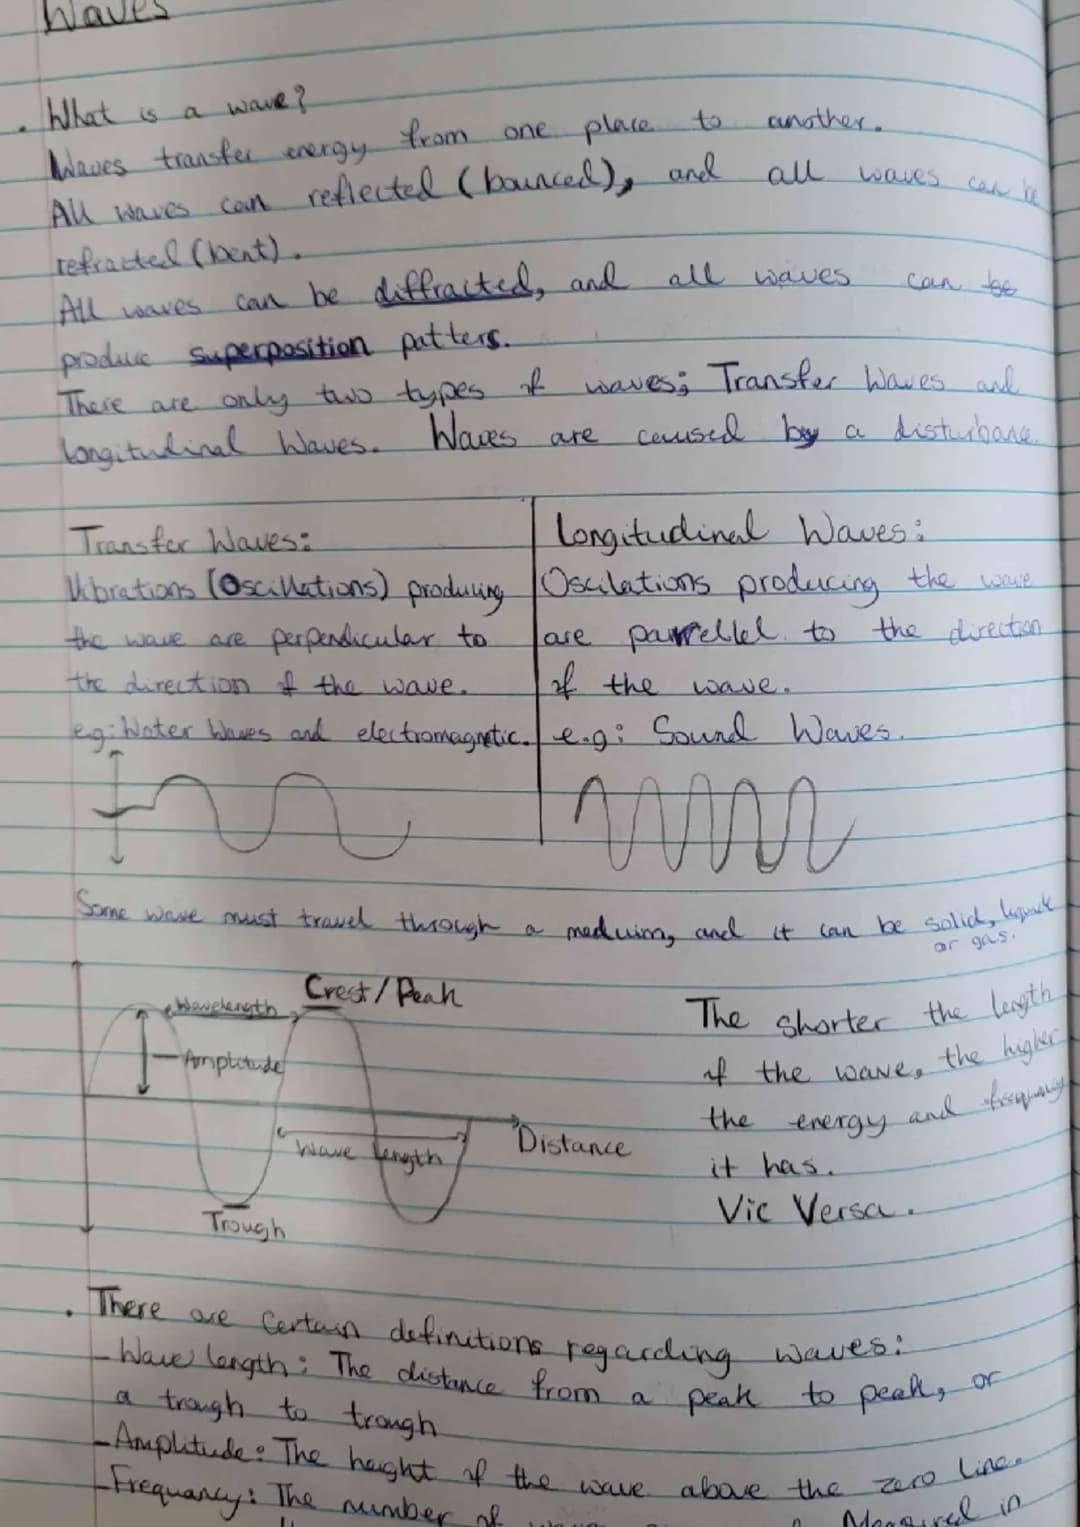 Waves
• What is a wave?
Waves transfer energy from one place to another.
All waves can reflected (bounced), and all waves can be
refracted (bent).
All waves can be diffracted, and all waves can be
produce superposition patters.
There are only two types of waves; Transfer Waves and
Longitudinal Waves. Waves are caused by a disturbance.
Transfer Waves:
Vibrations (Oscillations) producing
the wave are perpendicular to
the direction of the wave.
e.g: Water Waves and electromagnetic.
Longitudinal Waves:
Oscilations producing the wave
are parrellel to the direction
of the wave.
e.g: Sound Waves.
Some wave must travel through a meduim, and it can be solid,
or gas.
Crest/Peak
Wavelength
Amplitude
Wave length
Distance
Trough
The shorter the length
of the wave, the higher
the energy and frequency
it has.
Vic Versa.
• There are certain definitions regarding waves:
- Wave length: The distance from a peak to peak, or
a trough to trough
- Amplitude: The height of the wave above the zero line.
- Frequancy: The number of Measured in